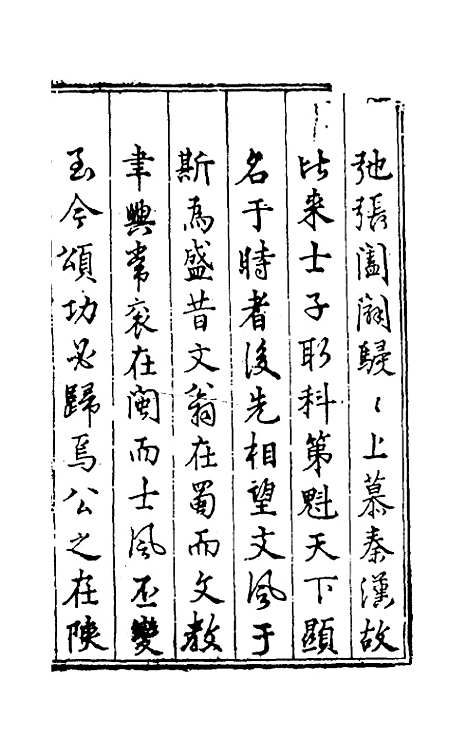 弛張闔闢駸〻上慕秦漢故
比来士子取科第魁天下顯
名于時者後先相望文風于
斯為盛昔文翁在蜀而文教
聿興常衮在閩而士風丕變
至今頌功必歸焉公之在陝